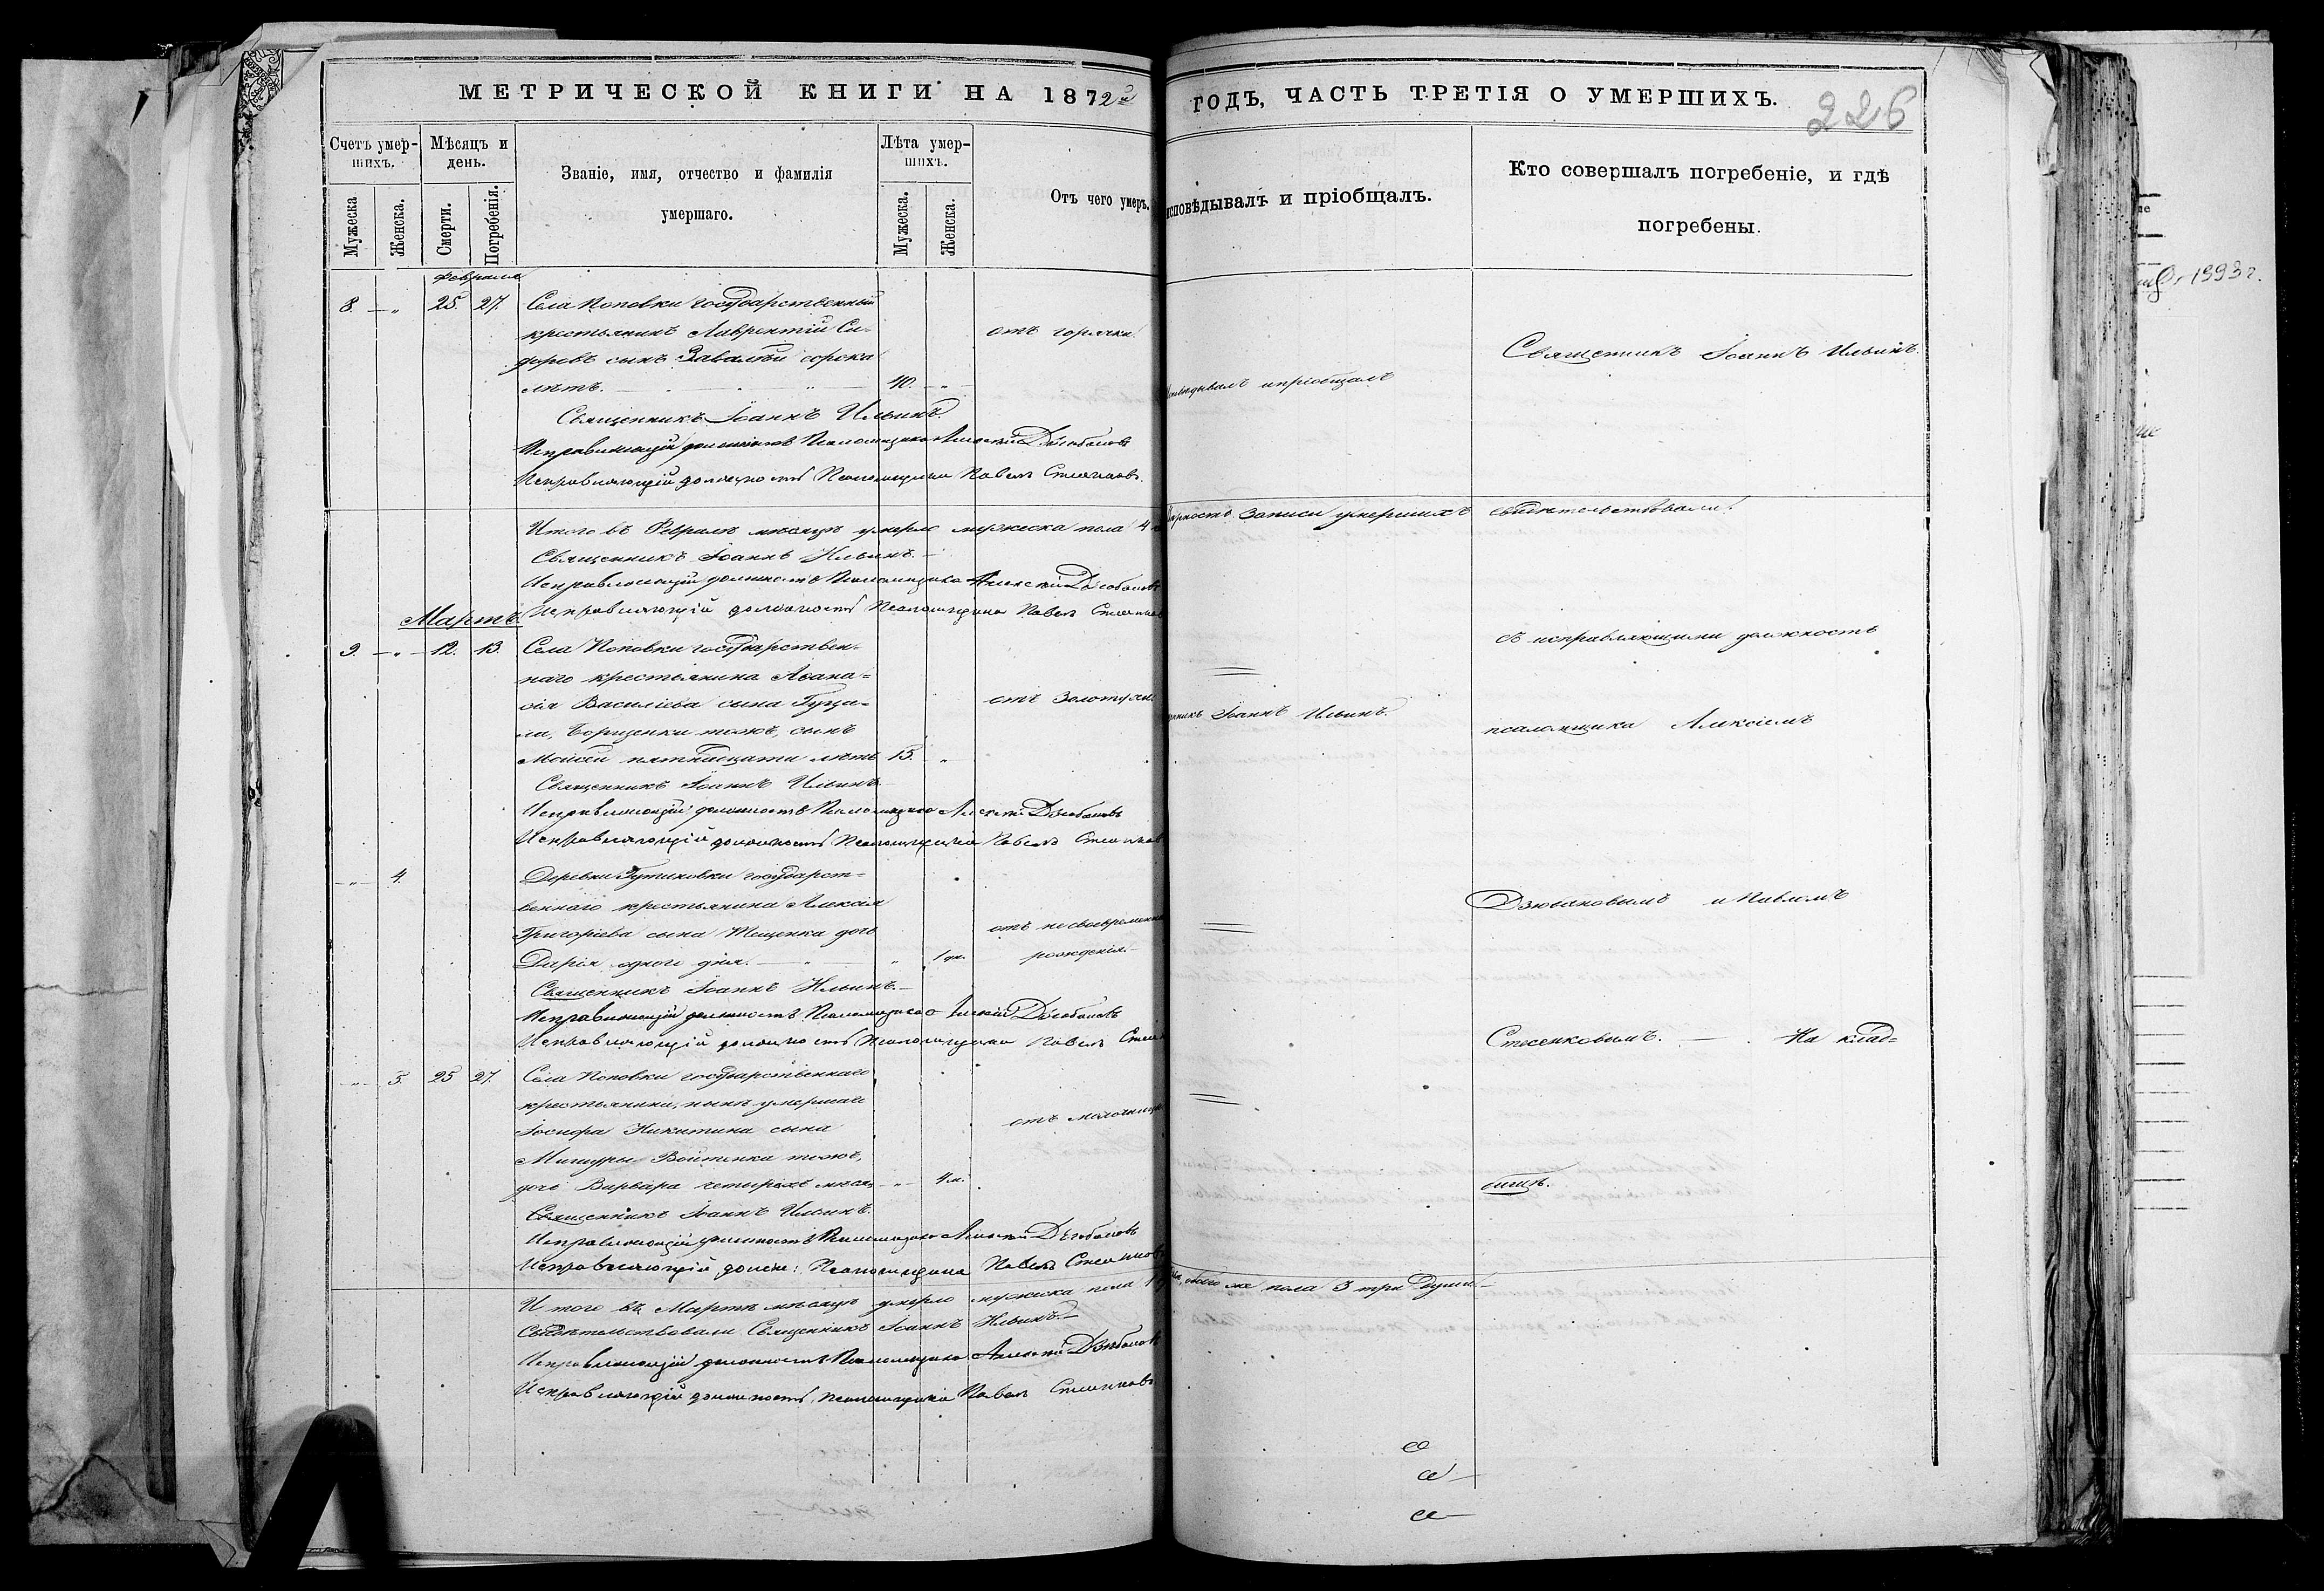 МЕТРИЧЕСКОЙ КНИГИ НА 1872й
Счетъ умершихъ.
Мужеска
Женска.
Мѣсяцъ и день.
Смерти.
Погребенія.
Званіе, имя, отчество и фамилія
умершаго.
Лѣта умершихъ.
Мужеска.
Женска.
Отъ чего умеръ.
Февраля
8. — „ 25. 27. Села Поповки государственный
крестьянинъ Лаврентій Си-
доровъ сынъ сорока
лѣтъ. — „ — 40. — „
отъ горячки
Священникъ Іоаннъ Ильинъ.
Исправляющій должность Псаломщика Алексій Дзюбановъ
Исправляющій должность Псаломщика Павелъ Стесенковъ.
Итого въ Февралѣ мѣсяцѣ умерло мужеска пола 4
Священникъ Іоаннъ Ильинъ. —
Исправляющій должность Псаломщика Алексій Дзюбановъ
Исправляющій должность Псаломщика Павелъ
Мартъ.
9. — „ — 12. 13. Села Поповки государствен-
наго крестьянина Аѳана-
сія Василіева сына Гуца-
ли, Борщенки тожъ, сынъ
Моисей пятнадцати лѣтъ 15. „
отъ Золотухи.
Священникъ Іоаннъ Ильинъ
Исправляющій должность Псаломщика Алексій Дзюбановъ
Исправляющій должность Псаломщика Павелъ
— „ — 4. Деревни государст-
веннаго крестьянина Алексія
Григоріева сына Тещенка дочь
Дарія одного дня. — „ — „ 1 дн.
отъ несвоевременна
рожденія. —
Священникъ Іоаннъ Ильинъ. —
Исправляющій должность Псаломщика Алексій Дзюбановъ
Исправляющій должность Псаломщика Павелъ
— „ — 5. 25 27. Села Поповки государственнаго
крестьянина, нынѣ умершаго
Іосифа Никитина сына
Мишуры Войтенка тожъ,
дочь Варвара четырехъ мѣсяц. — „ — 4 м.
отъ
Священникъ Іоаннъ Ильинъ.
Исправляющій должность Псаломщика Алексій Дзюбановъ
Исправляющій должн: Псаломщика Павелъ
Итого въ Мартѣ мѣсяцѣ умерло мужеска пола 1
Свидѣтельствовали Священникъ Іоаннъ Ильинъ. —
Исправляющій должность Псаломщика Алексій Дзюбановъ
Исправляющій должность Псаломщика Павелъ Стесенковъ
ГОДЪ, ЧАСТЬ ТРЕТІЯ О УМЕРШИХЪ.
226
исповѣдывалъ и пріобщалъ.
Кто совершалъ погребеніе, и гдѣ
погребены.
Исповѣдывалъ и пріобщалъ
Священникъ Іоаннъ Ильинъ.
записи умершихъ свидѣтельствовали:
съ исправляющими должность
Іоаннъ Ильинъ.
псаломщика Алексіемъ
Дзюбановымъ и Павломъ
Стесенковымъ. — . На клад-
бищѣ.
обоего же пола 3 три души. —
1993 г.